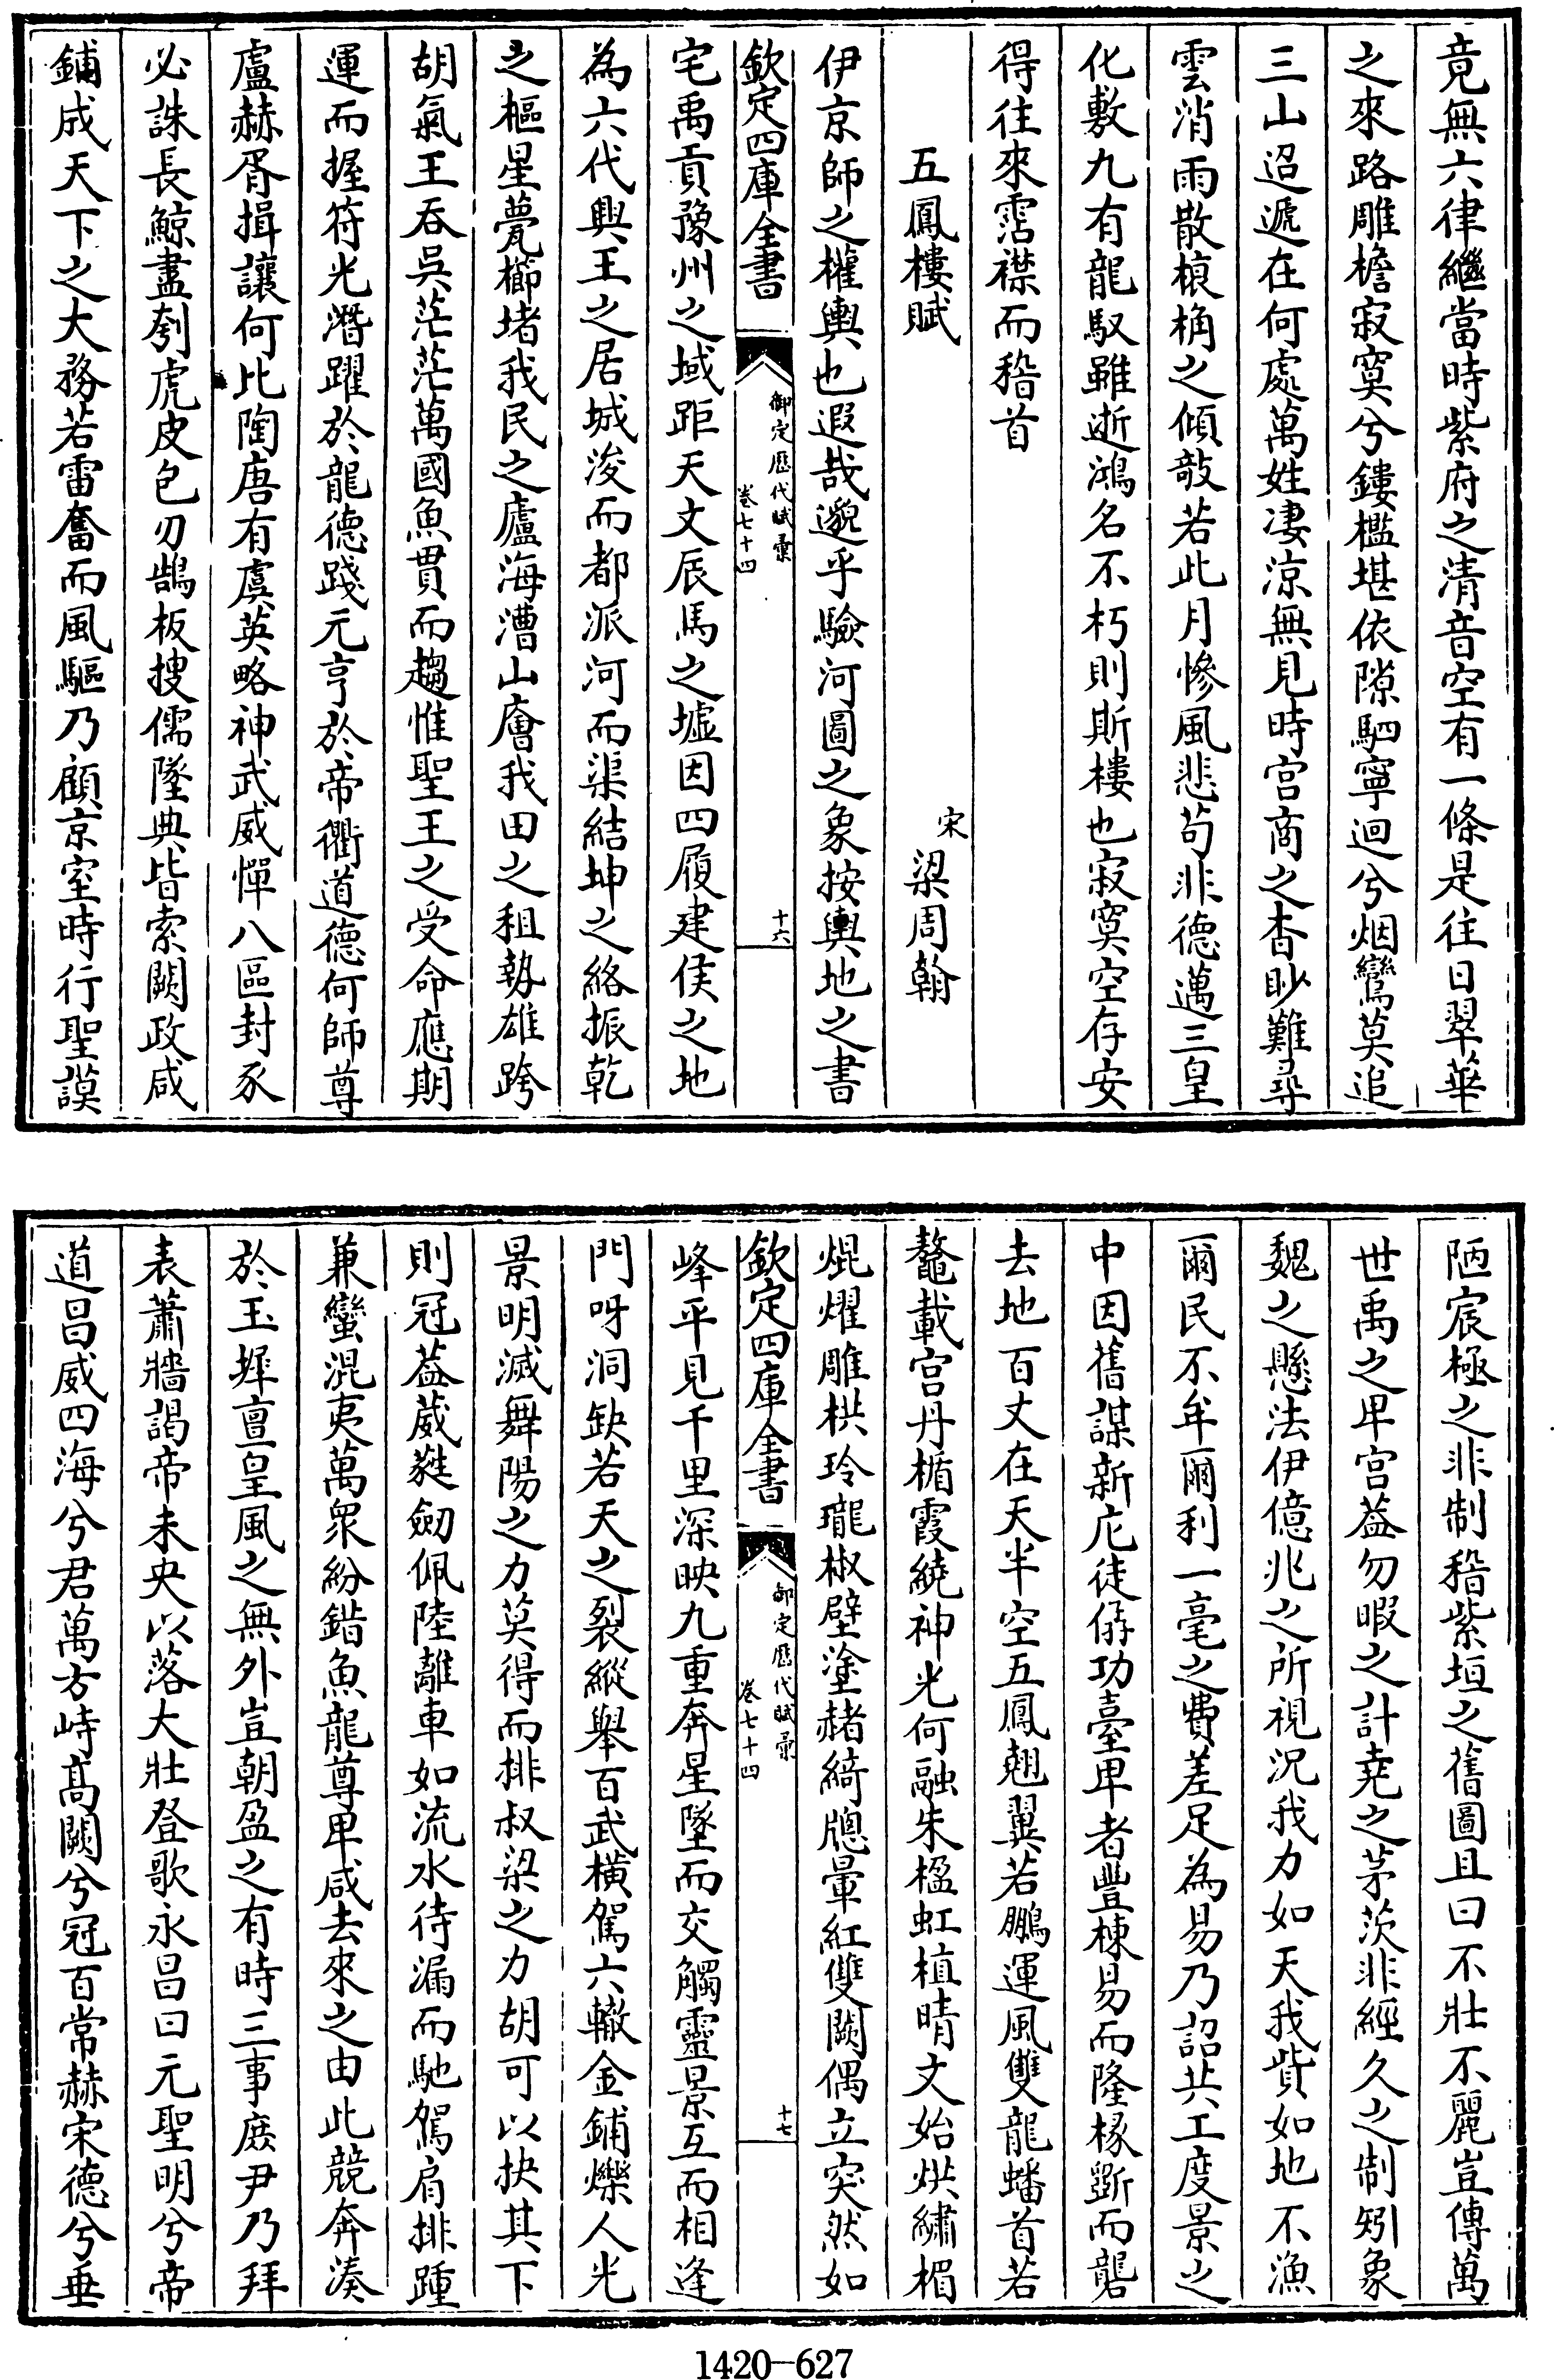 竟無六律繼當時紫府之清音空有一條是往日翠華
之來路雕檐寂寞兮鏤檻堪依隙駟寧迴兮烟鸞莫追
三山迢遞在何處萬姓凄涼無見時宫商之杳眇難尋
雲消雨散榱桷之傾敧若此月慘風悲苟非德邁三皇
化敷九有龍馭雖逝鴻名不朽則斯樓也寂寞空存安
得往來霑襟而稽首
五鳳樓賦
宋 梁周翰
伊京師之權輿也遐哉邈乎驗河圖之象按輿地之書
欽定四庫全書
御定歷代賦彙
卷七十四
十六
宅禹貢豫州之域距天文辰馬之墟因四履建侯之地
為六代興王之居城浚而都派河而渠結坤之絡振乾
之樞星甍櫛堵我民之廬海漕山廥我田之租勢雄跨
胡氣王吞吳茫茫萬國魚貫而趨惟聖王之受命應期
運而握符光潛躍於龍德踐元亨於帝衢道德何師尊
盧赫胥揖讓何比陶唐有虞英略神武威憚八區封豕
必誅長鯨盡刳虎皮包刃鵠板搜儒墜典皆索闕政咸
鋪成天下之大務若雷奮而風驅乃顧京室時行聖謨
陋宸極之非制稽紫垣之舊圖且曰不壯不麗豈傳萬
世禹之卑宫葢勿暇之計堯之茅茨非經久之制矧象
魏之懸法伊億兆之所視況我力如天我貲如地不漁
爾民不牟爾利一毫之費差足為易乃詔共工度景之
中因舊謀新庀徒僝功臺卑者豐棟易而隆椽斲而礱
去地百丈在天半空五鳳翹翼若鵬運風雙龍蟠首若
鼇載宫丹楯霞繞神光何融朱楹虹植晴文始烘繡楣
焜燿雕栱玲瓏椒壁塗赭綺牕暈紅雙闕偶立突然如
欽定四庫全書
御定歷代賦彙
卷七十四
十七
峰平見千里深映九重奔星墜而交觸靈景互而相逢
門呀洞缺若天之裂縱舉百武橫駕六轍金鋪爍人光
景明滅舞陽之力莫得而排叔梁之力胡可以抉其下
則冠葢葳蕤劒佩陸離車如流水待漏而馳駕肩排踵
兼蠻混夷萬衆紛錯魚龍尊卑咸去來之由此競奔湊
於玉墀亶皇風之無外豈朝盈之有時三事庶尹乃拜
表蕭牆謁帝未央以落大壯登歌永昌曰元聖明兮帝
道昌威四海兮君萬方峙髙闕兮冠百常赫宋德兮垂
1420—627